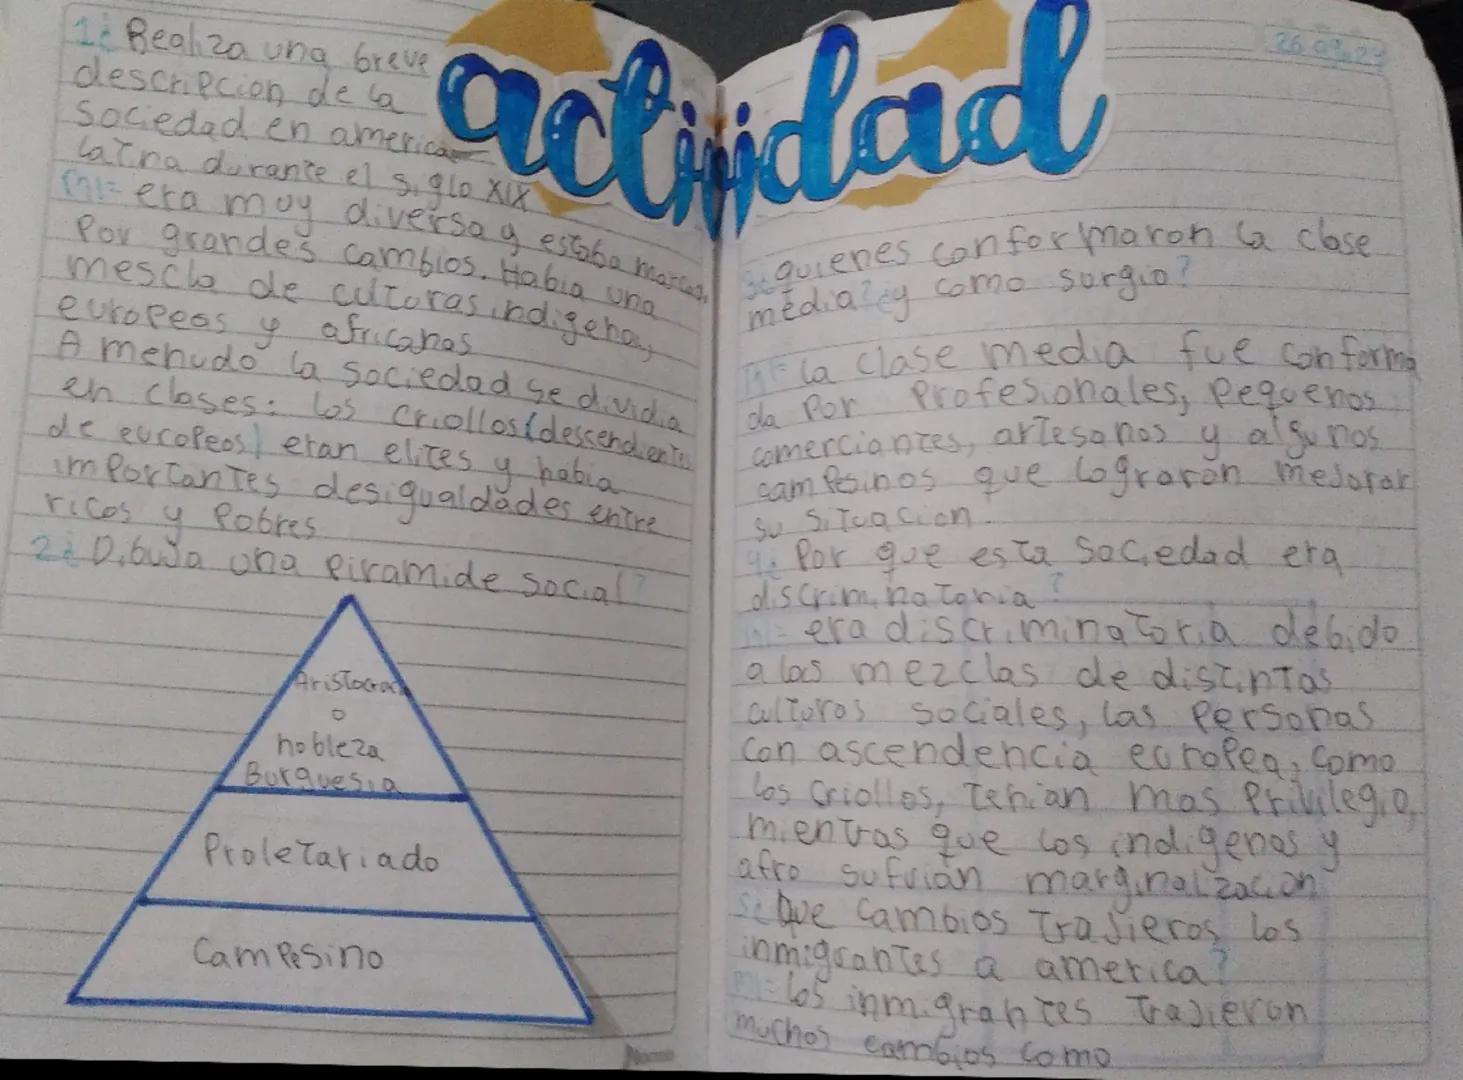 actividad
26 09 23
1¿ Realiza una breve
descripcion de la
sociedad en america
latina durante el siglo XIX
m1= era muy diversa y estaba marcada
por grandes cambios. Habia una
mescla de culturas indigenas,
europeas y africanas
A menudo la sociedad se dividia
en clases: los criollos (descendientes
de europeos) eran elites y habia
importantes desigualdades entre
ricos y pobres
2¿ Dibuja una piramide social?
Aristocracia
o
nobleza
Burguesia
Proletariado
Campesino
3¿ quienes conformaron la clase
media? ¿y como surgio?
m= la clase media fue conforma
da por profesionales, pequenos
comerciantes, artesanos y algunos
campesinos que lograron mejorar
su situacion.
4¿ Por que esta sociedad era
discriminatoria?
m= era discriminatoria debido
a las mezclas de distintas
culturas sociales, las personas
con ascendencia europea, como
los criollos, tenian mas privilegio,
mientras que los indigenas y
afro sufrian marginalizacion
5¿ Que cambios trajieros los
inmigrantes a america?
m= los inmigrantes trajieron
muchos cambios como